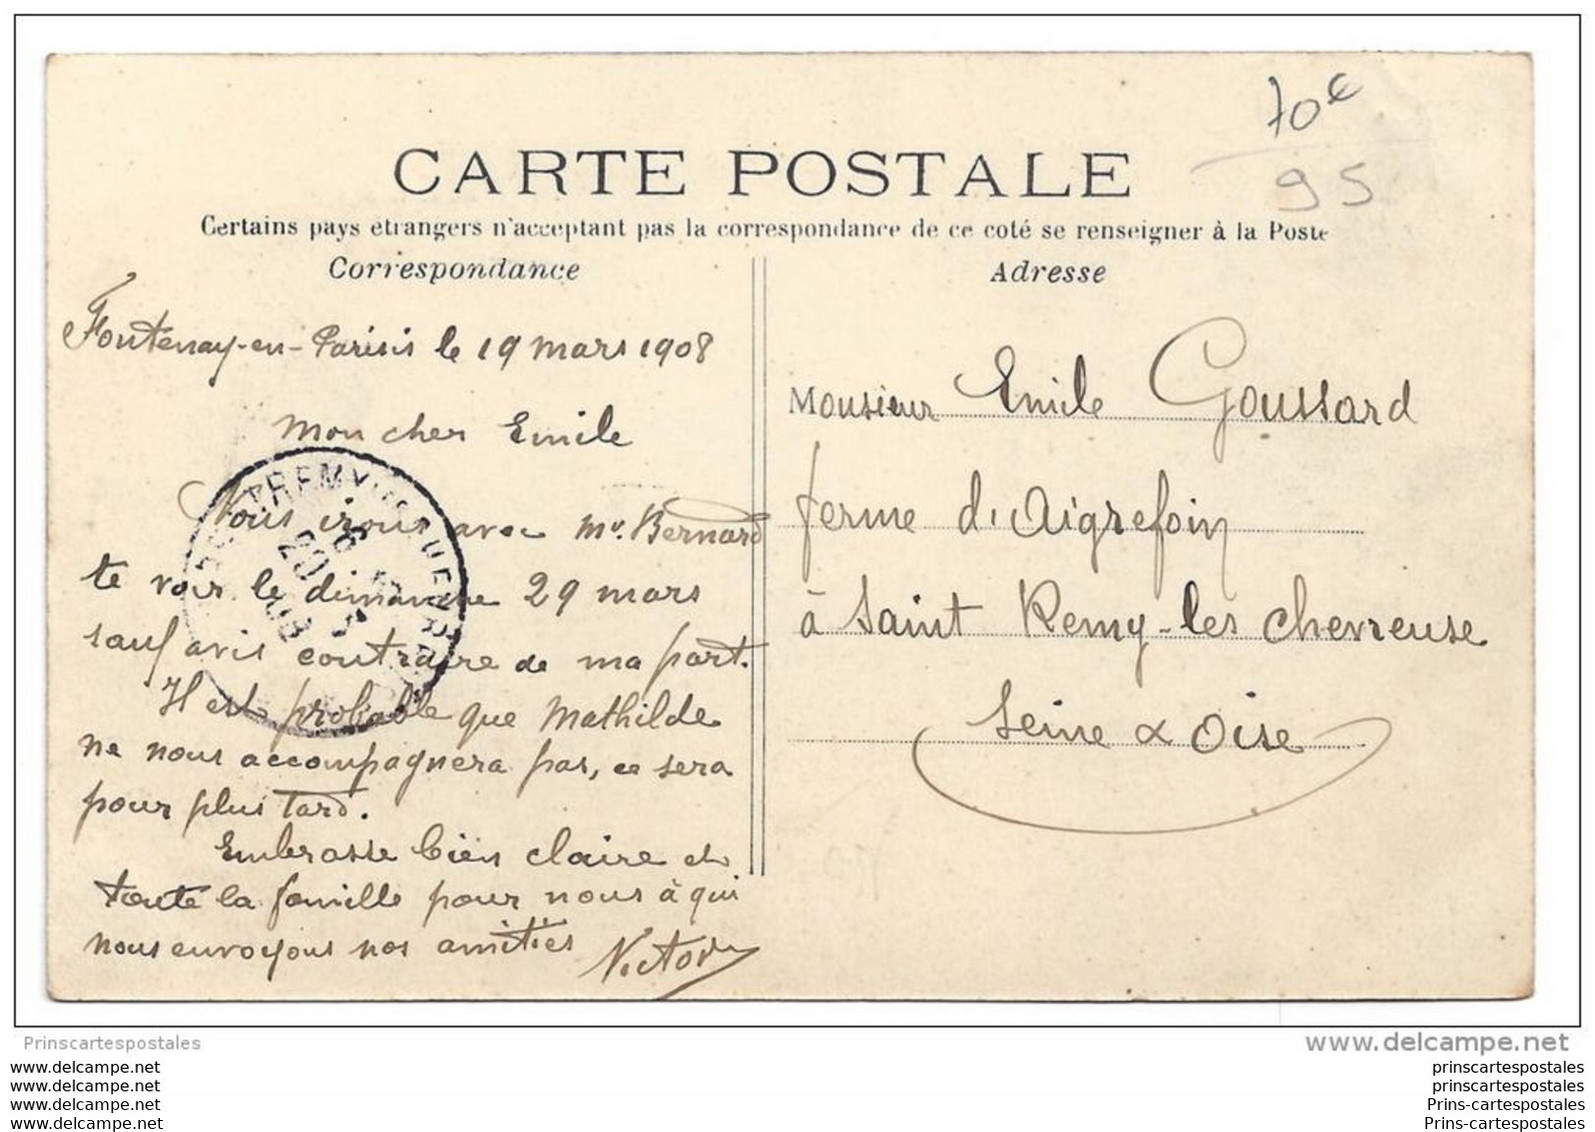 70€
95
CARTE POSTALE
Certains pays etrangers n'acceptant pas la correspondance de ce coté se renseigner à la Poste
Correspondance
Fontenay-en-Parisis le 19 mars 1908
Mon cher Emile
Nous irons avec Mr. Bernard
te voir le dimanche 29 mars
sauf avis contraire de ma part.
Il est probable que Mathilde
ne nous accompagnera pas, ce sera
pour plus tard.
Embrasse bien Claire et
toute la famille pour nous à qui
nous envoyons nos amitiés Victor
Adresse
Monsieur Emile Goussard
ferme d'Aigrefoin
à Saint Remy-les Chevreuse
Seine & Oise
ST REMY
20
08
Prinscartespostales
www.delcampe.net
www.delcampe.net
www.delcampe.net
www.delcampe.net
www.delcampe.net
prinscartespostales
prinscartespostales
Prins-cartespostales
Prins-cartespostales